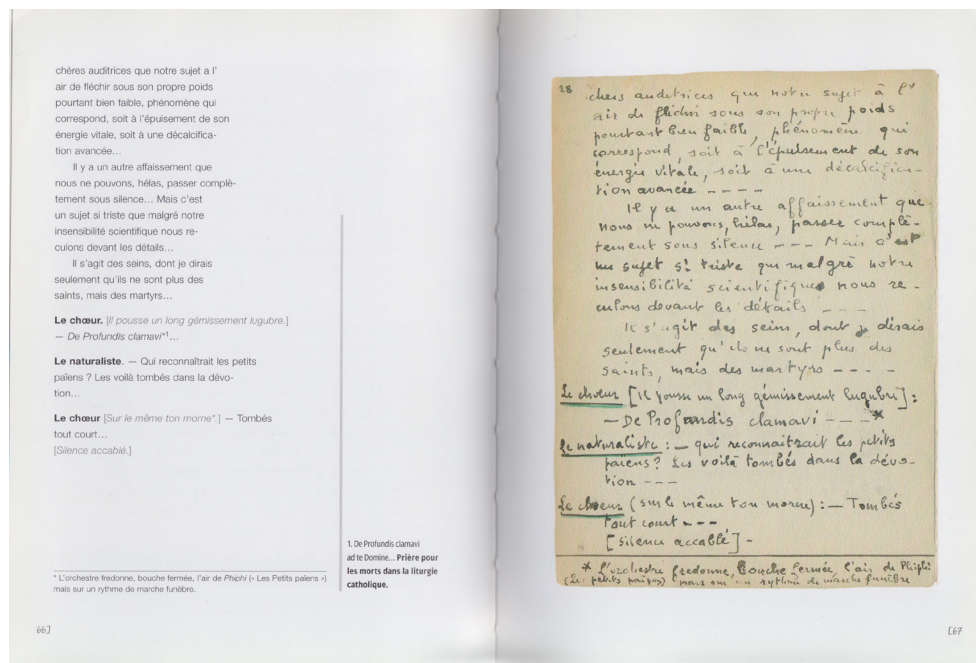 chères auditrices que notre sujet a l'
air de fléchir sous son propre poids
pourtant bien faible, phénomène qui
correspond, soit à l'épuisement de son
énergie vitale, soit à une décalcifica-
tion avancée…
Il y a un autre affaissement que
nous ne pouvons, hélas, passer complè-
tement sous silence… Mais c'est
un sujet si triste que malgré notre
insensibilité scientifique nous re-
culons devant les détails…
Il s'agit des seins, dont je dirais
seulement qu'ils ne sont plus des
saints, mais des martyrs…
Le chœur. [Il pousse un long gémissement lugubre.]
— De Profundis clamavi*¹…
Le naturaliste. — Qui reconnaîtrait les petits
païens ? Les voilà tombés dans la dévo-
tion…
Le chœur [Sur le même ton morne*.] — Tombés
tout court…
[Silence accablé.]
* L'orchestre fredonne, bouche fermée, l'air de Phiphi (« Les Petits païens »)
mais sur un rythme de marche funèbre.
1. De Profundis clamavi
ad te Domine... Prière pour
les morts dans la liturgie
catholique.
66]
28
chers auditrices que notre sujet à l'
air de fléchir sous son propre poids
pourtant bien faible, phénomène qui
correspond, soit à l'épuisement de son
énergie vitale, soit à une décalcifica-
tion avancée - - - -
Il y a un autre affaissement que
nous ne pouvons, hélas, passer complè-
tement sous silence - - - Mais c'est
un sujet si triste que malgré notre
insensibilité scientifique nous re-
culons devant les détails - - -
Il s'agit des seins, dont je dirais
seulement qu'ils ne sont plus des
saints, mais des martyrs - - - -
Le chœur [Il pousse un long gémissement lugubre] :
— De Profundis clamavi - - - *
Le naturaliste : — qui reconnaitrait les petits
païens ? Les voilà tombés dans la dévo-
tion - - -
Le chœur (sur le même ton morne) : — Tombés
tout court - - -
[Silence accablé] -
* L'orchestre fredonne, bouche fermée, l'air de Phiphi
(Les petits païens) mais sur un rythme de marche funèbre
[67